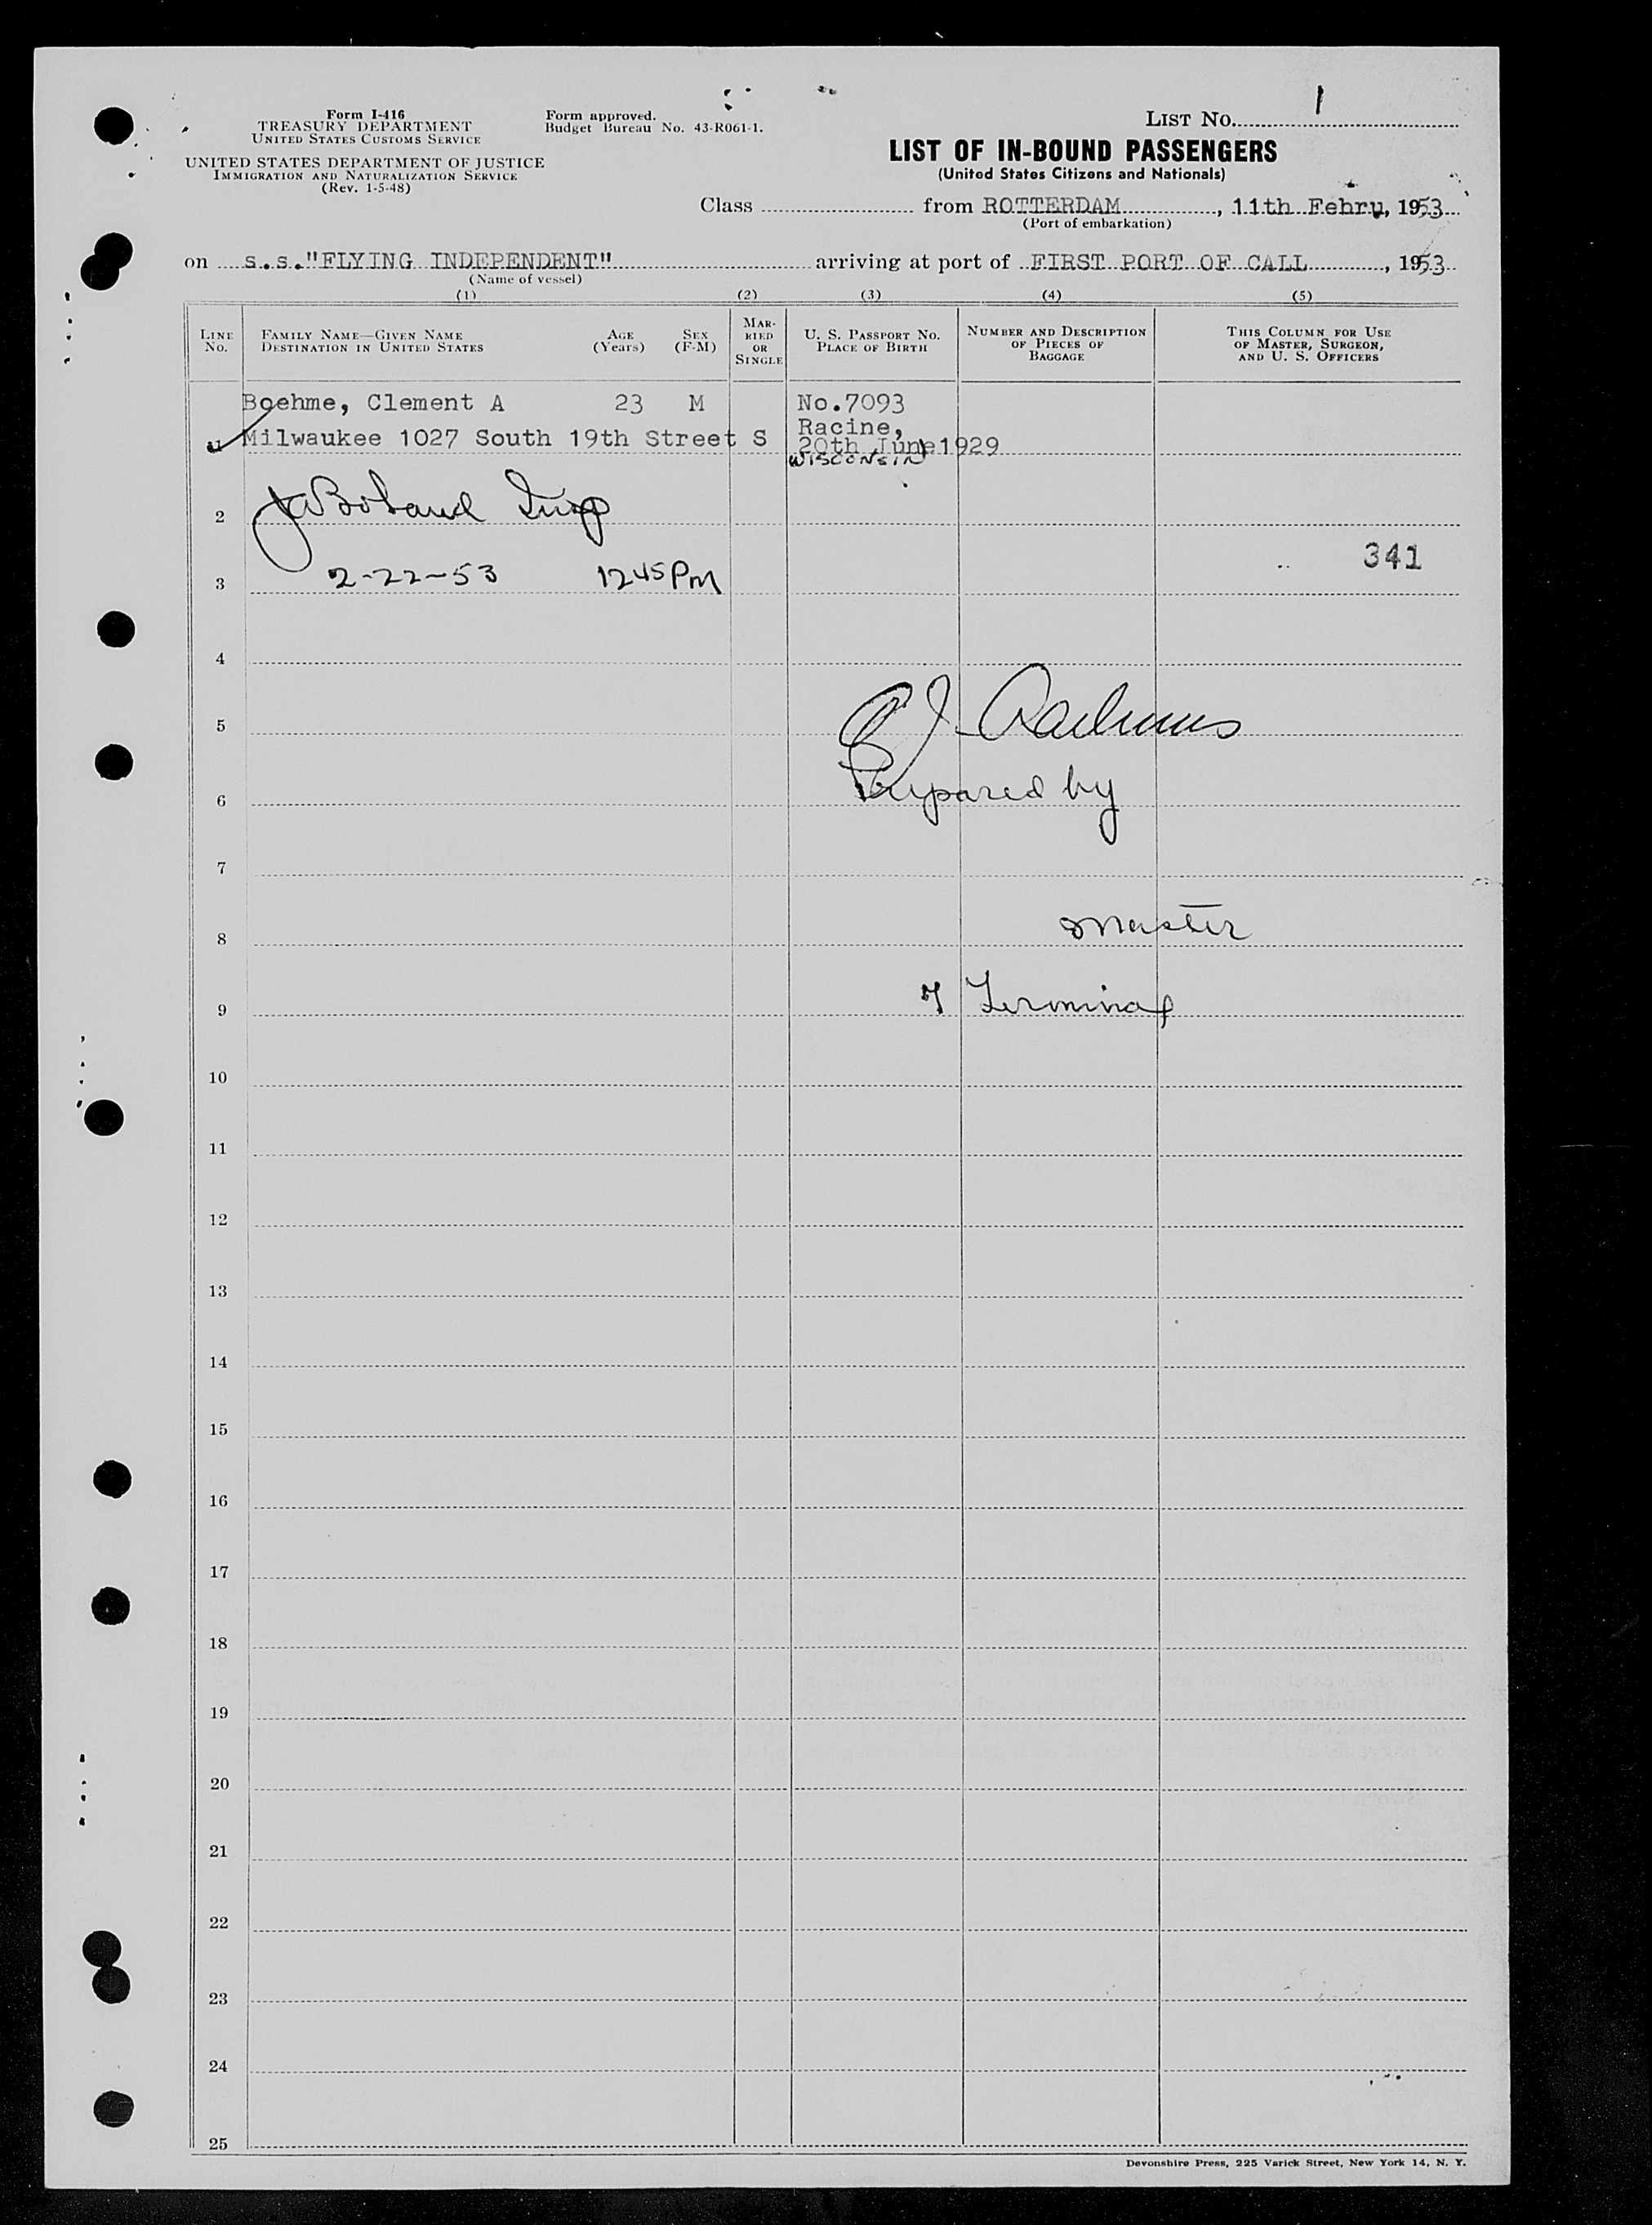 Form I-416
TREASURY DEPARTMENT
UNITED STATES CUSTOMS SERVICE
UNITED STATES DEPARTMENT OF JUSTICE
IMMIGRATION AND NATURALIZATION SERVICE
(Rev. 1-5-48)
Form approved.
Budget Bureau No. 43-R061-1.
LIST No. 1
LIST OF IN-BOUND PASSENGERS
(United States Citizens and Nationals)
Class from ROTTERDAM, 11th Febru, 1953
(Port of embarkation)
on s.s."FLYING INDEPENDENT" arriving at port of FIRST PORT OF CALL, 1953
(Name of vessel)
(1) (2) (3) (4) (5)
LINE No.
FAMILY NAME—GIVEN NAME
DESTINATION IN UNITED STATES
AGE (Years)
SEX (F-M)
MARRIED OR SINGLE
U. S. PASSPORT NO.
PLACE OF BIRTH
NUMBER AND DESCRIPTION
OF PIECES OF
BAGGAGE
THIS COLUMN FOR USE
OF MASTER, SURGEON,
AND U. S. OFFICERS
Boehme, Clement A 23 M No.7093
Racine,
1 Milwaukee 1027 South 19th Street S 20th June 1929
WISCONSIN
2 Boland Insp
341
3 2-22-53 1245 PM
4
5
6 Prepared by
7
8 Master
9 Terminal
10
11
12
13
14
15
16
17
18
19
20
21
22
23
24
25
Devonshire Press, 225 Varick Street, New York 14, N. Y.